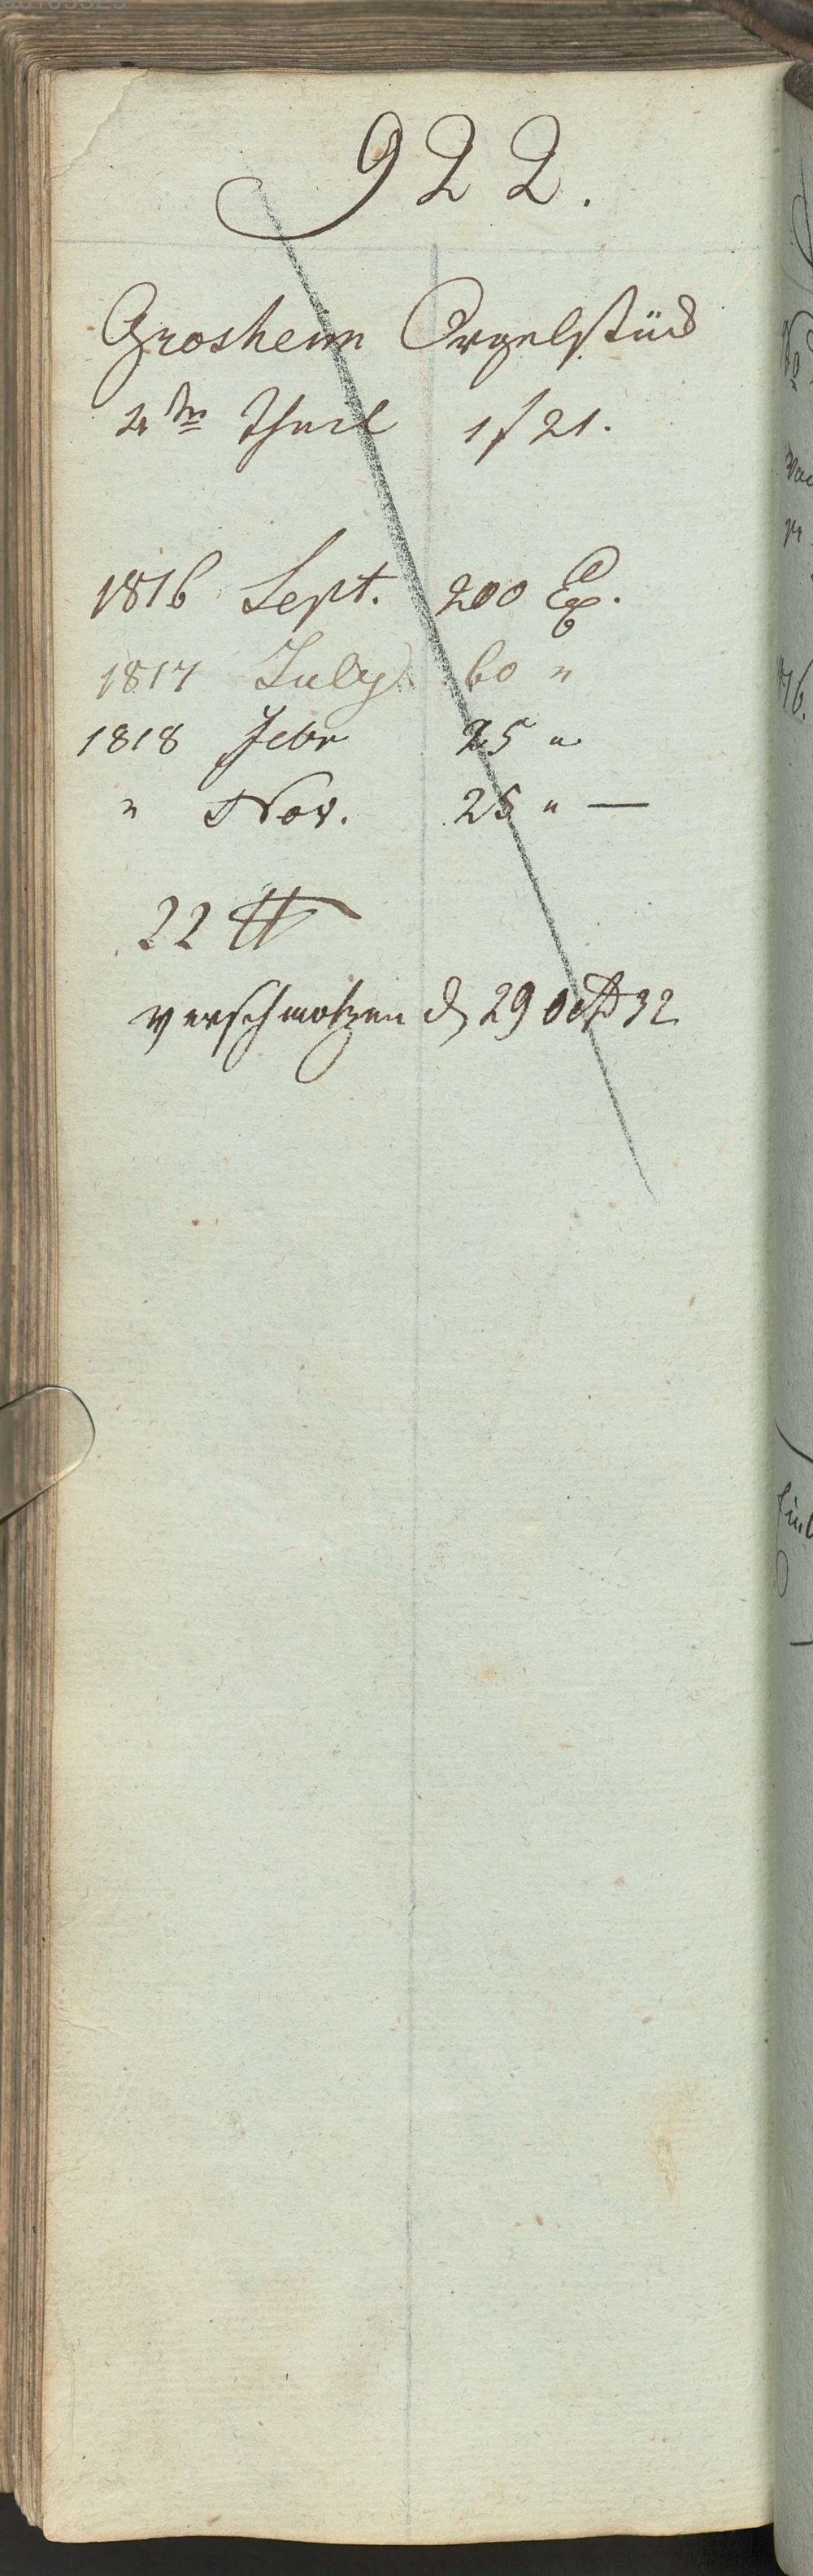 922.
Grosheim Orgelstück
2ter Theil 1 f 21.
1816 Sept. 200 Ex.
1817 July 60 "
1818 Febr 25 "
" Nov. 25 " —
22 ℔
verschmolzen d 29 Oct 32